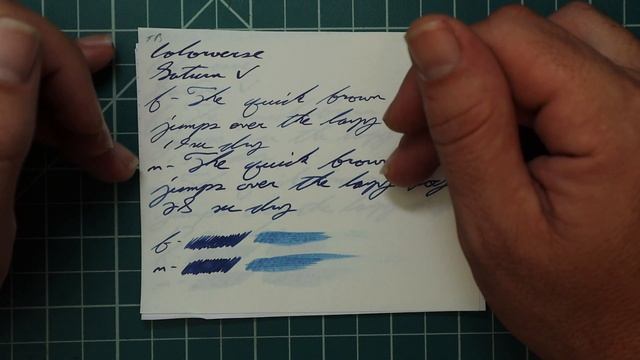 TR
Colorverse
Saturn V
f - The quick brown
jumps over the lazy
15 sec dry
m - The quick brown
jumps over the lazy dog
25 sec dry
f -
m -